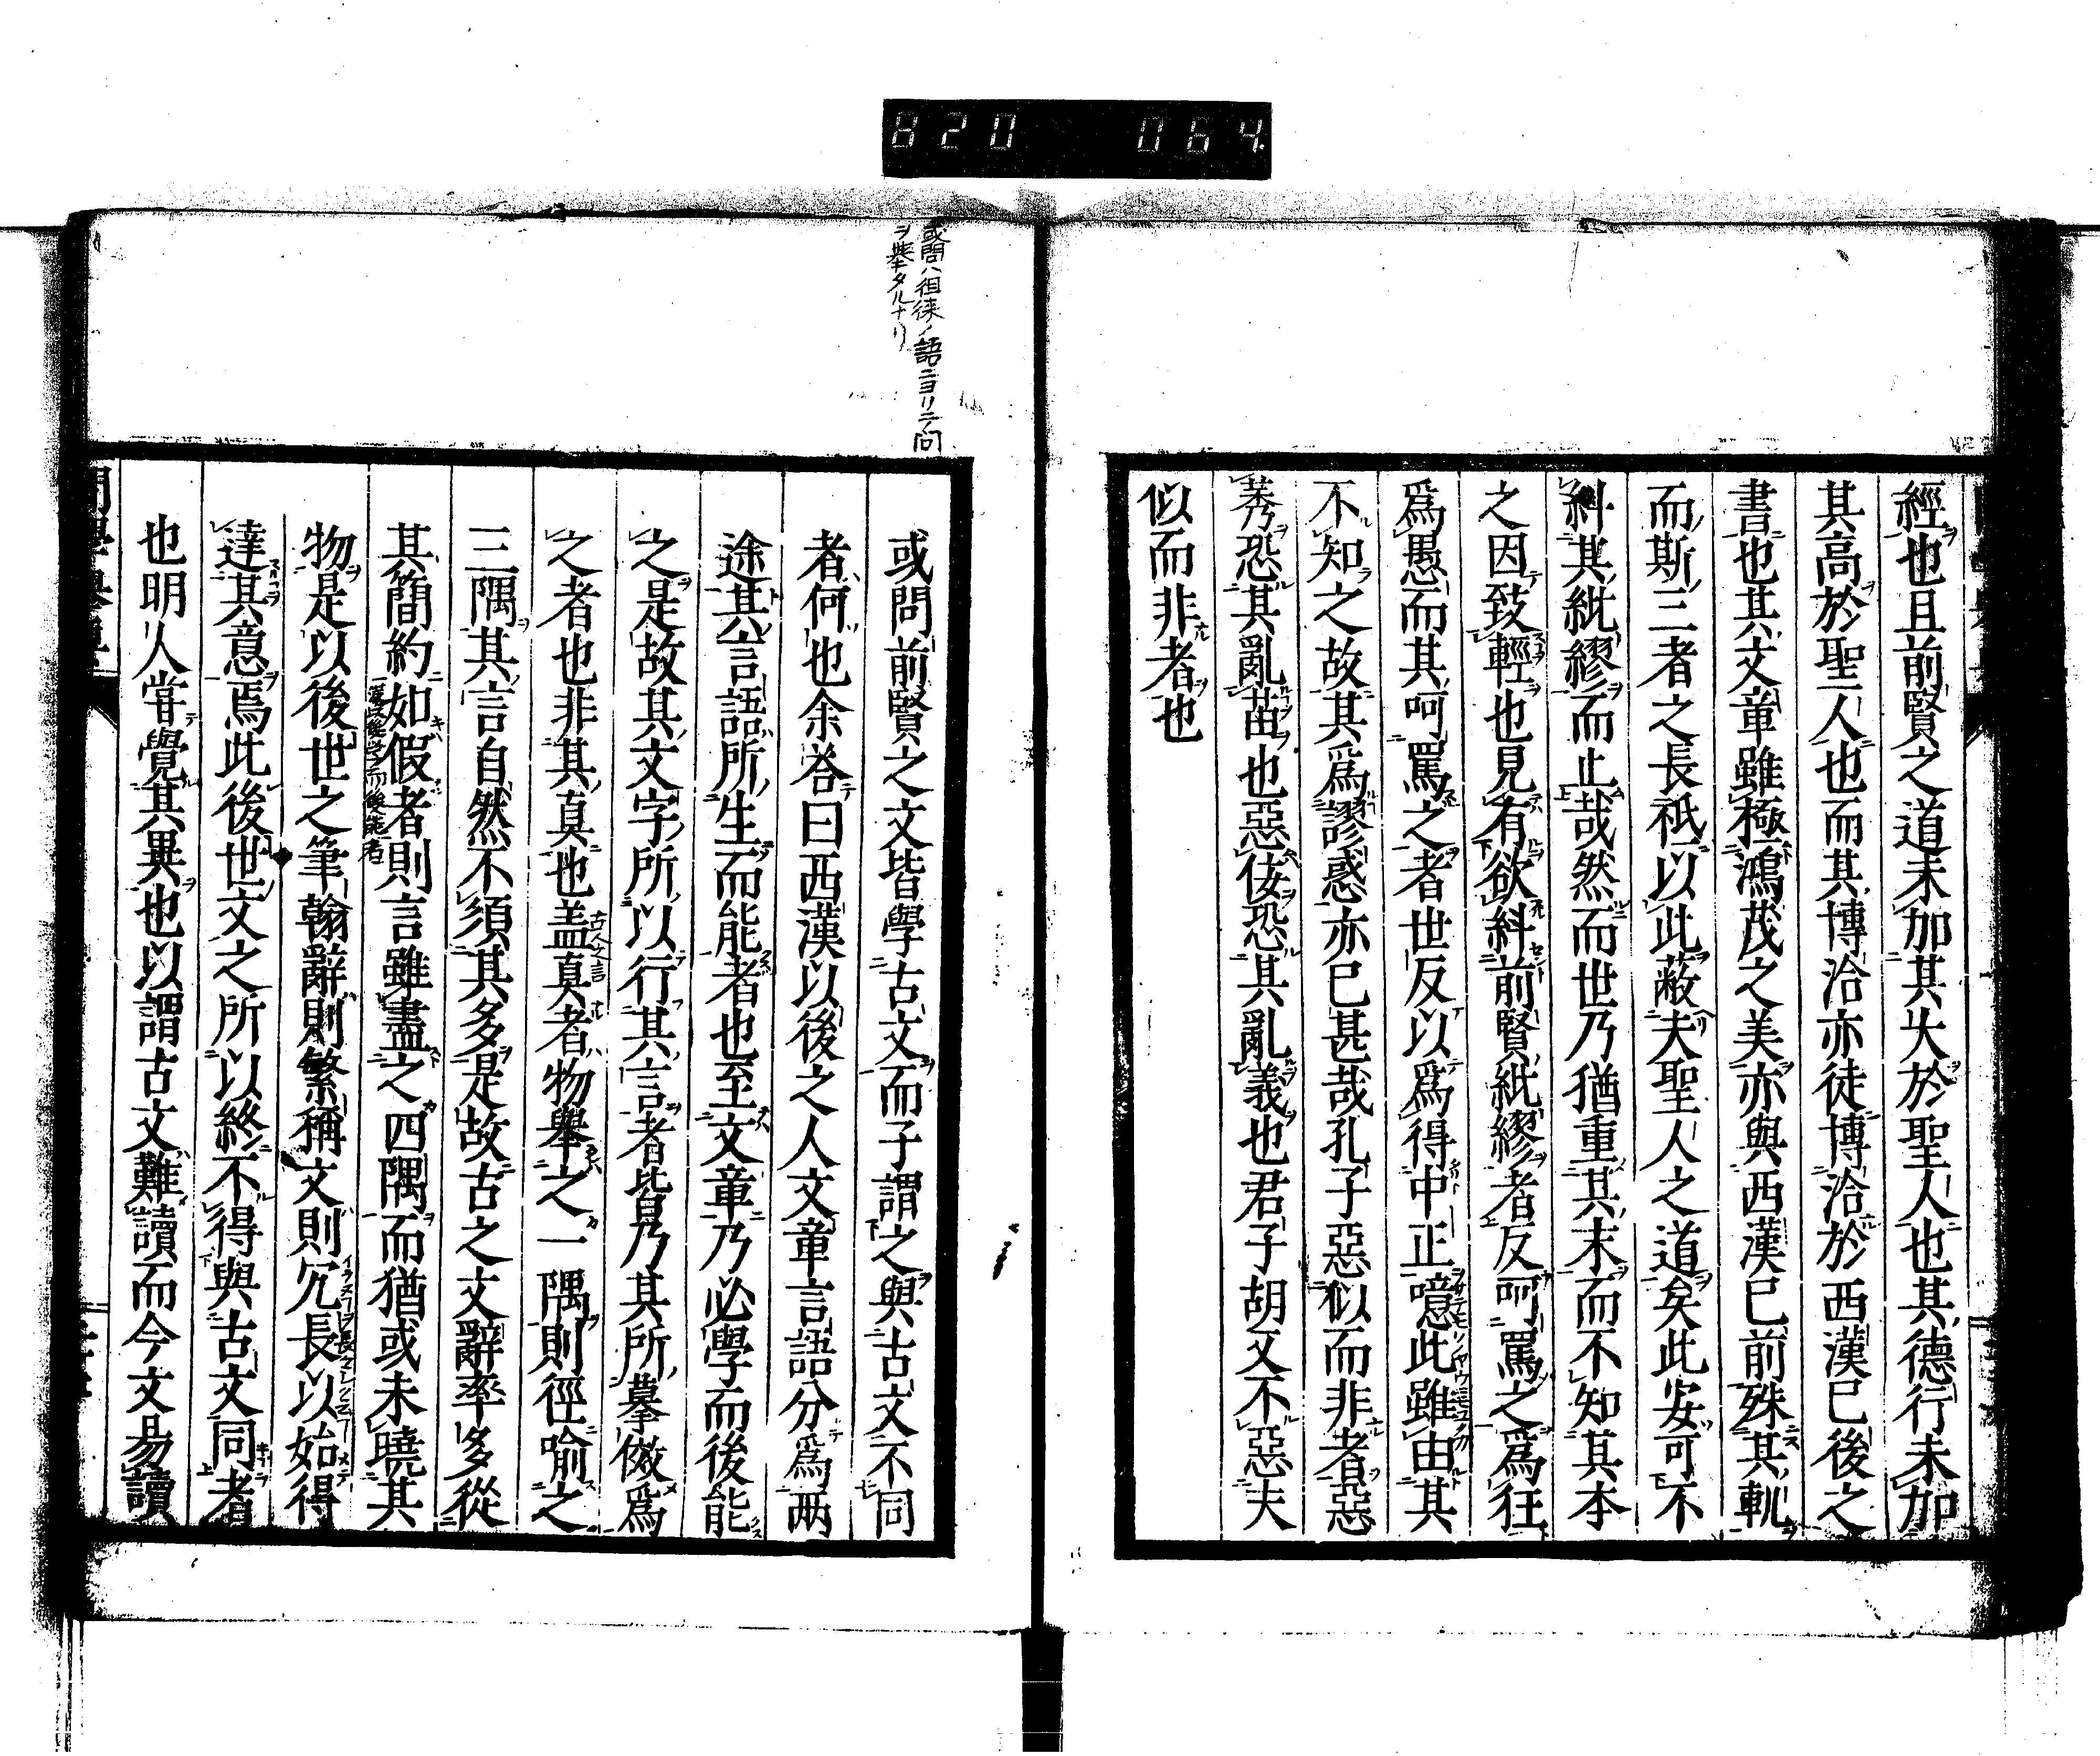 820 064
經也且前賢之道未加其失於聖人也其德行未加
其高於聖人也而其博洽亦徒博洽於西漢已後之
書也其文章雖極鴻茂之美亦與西漢已前殊其軌
而斯三者之長祇以此蔽夫聖人之道矣此安可不
糾其紕繆而止哉然而世乃猶重其末而不知其本
之因致輕也見有欲糾前賢紕繆者反呵罵之爲狂
爲愚而其呵罵之者世反以爲得中正噫此雖由其
不知之故其爲謬惑亦已甚哉孔子惡似而非者惡
莠恐其亂苗也惡佞恐其亂義也君子胡又不惡夫
似而非者也
或問ハ徂徠ノ語ニヨリテ問
ヲ擧タルナリ
或問前賢之文皆學古文而子謂之與古文不同
者何也余答曰西漢以後之人文章言語分爲兩
途其言語所生而能者也至文章乃必學而後能
之是故其文字所以行其言者皆乃其所摹倣爲
之者也非其真也蓋真者物舉之一隅則徑喻之
三隅其言自然不須其多是故古之文辭率多從
其簡約如假者則言雖盡之四隅而猶或未曉其
物是以後世之筆翰辭則繁稱文則冗長以始得
達其意焉此後世文之所以終不得與古文同者
也明人嘗覺其異也以謂古文難讀而今文易讀